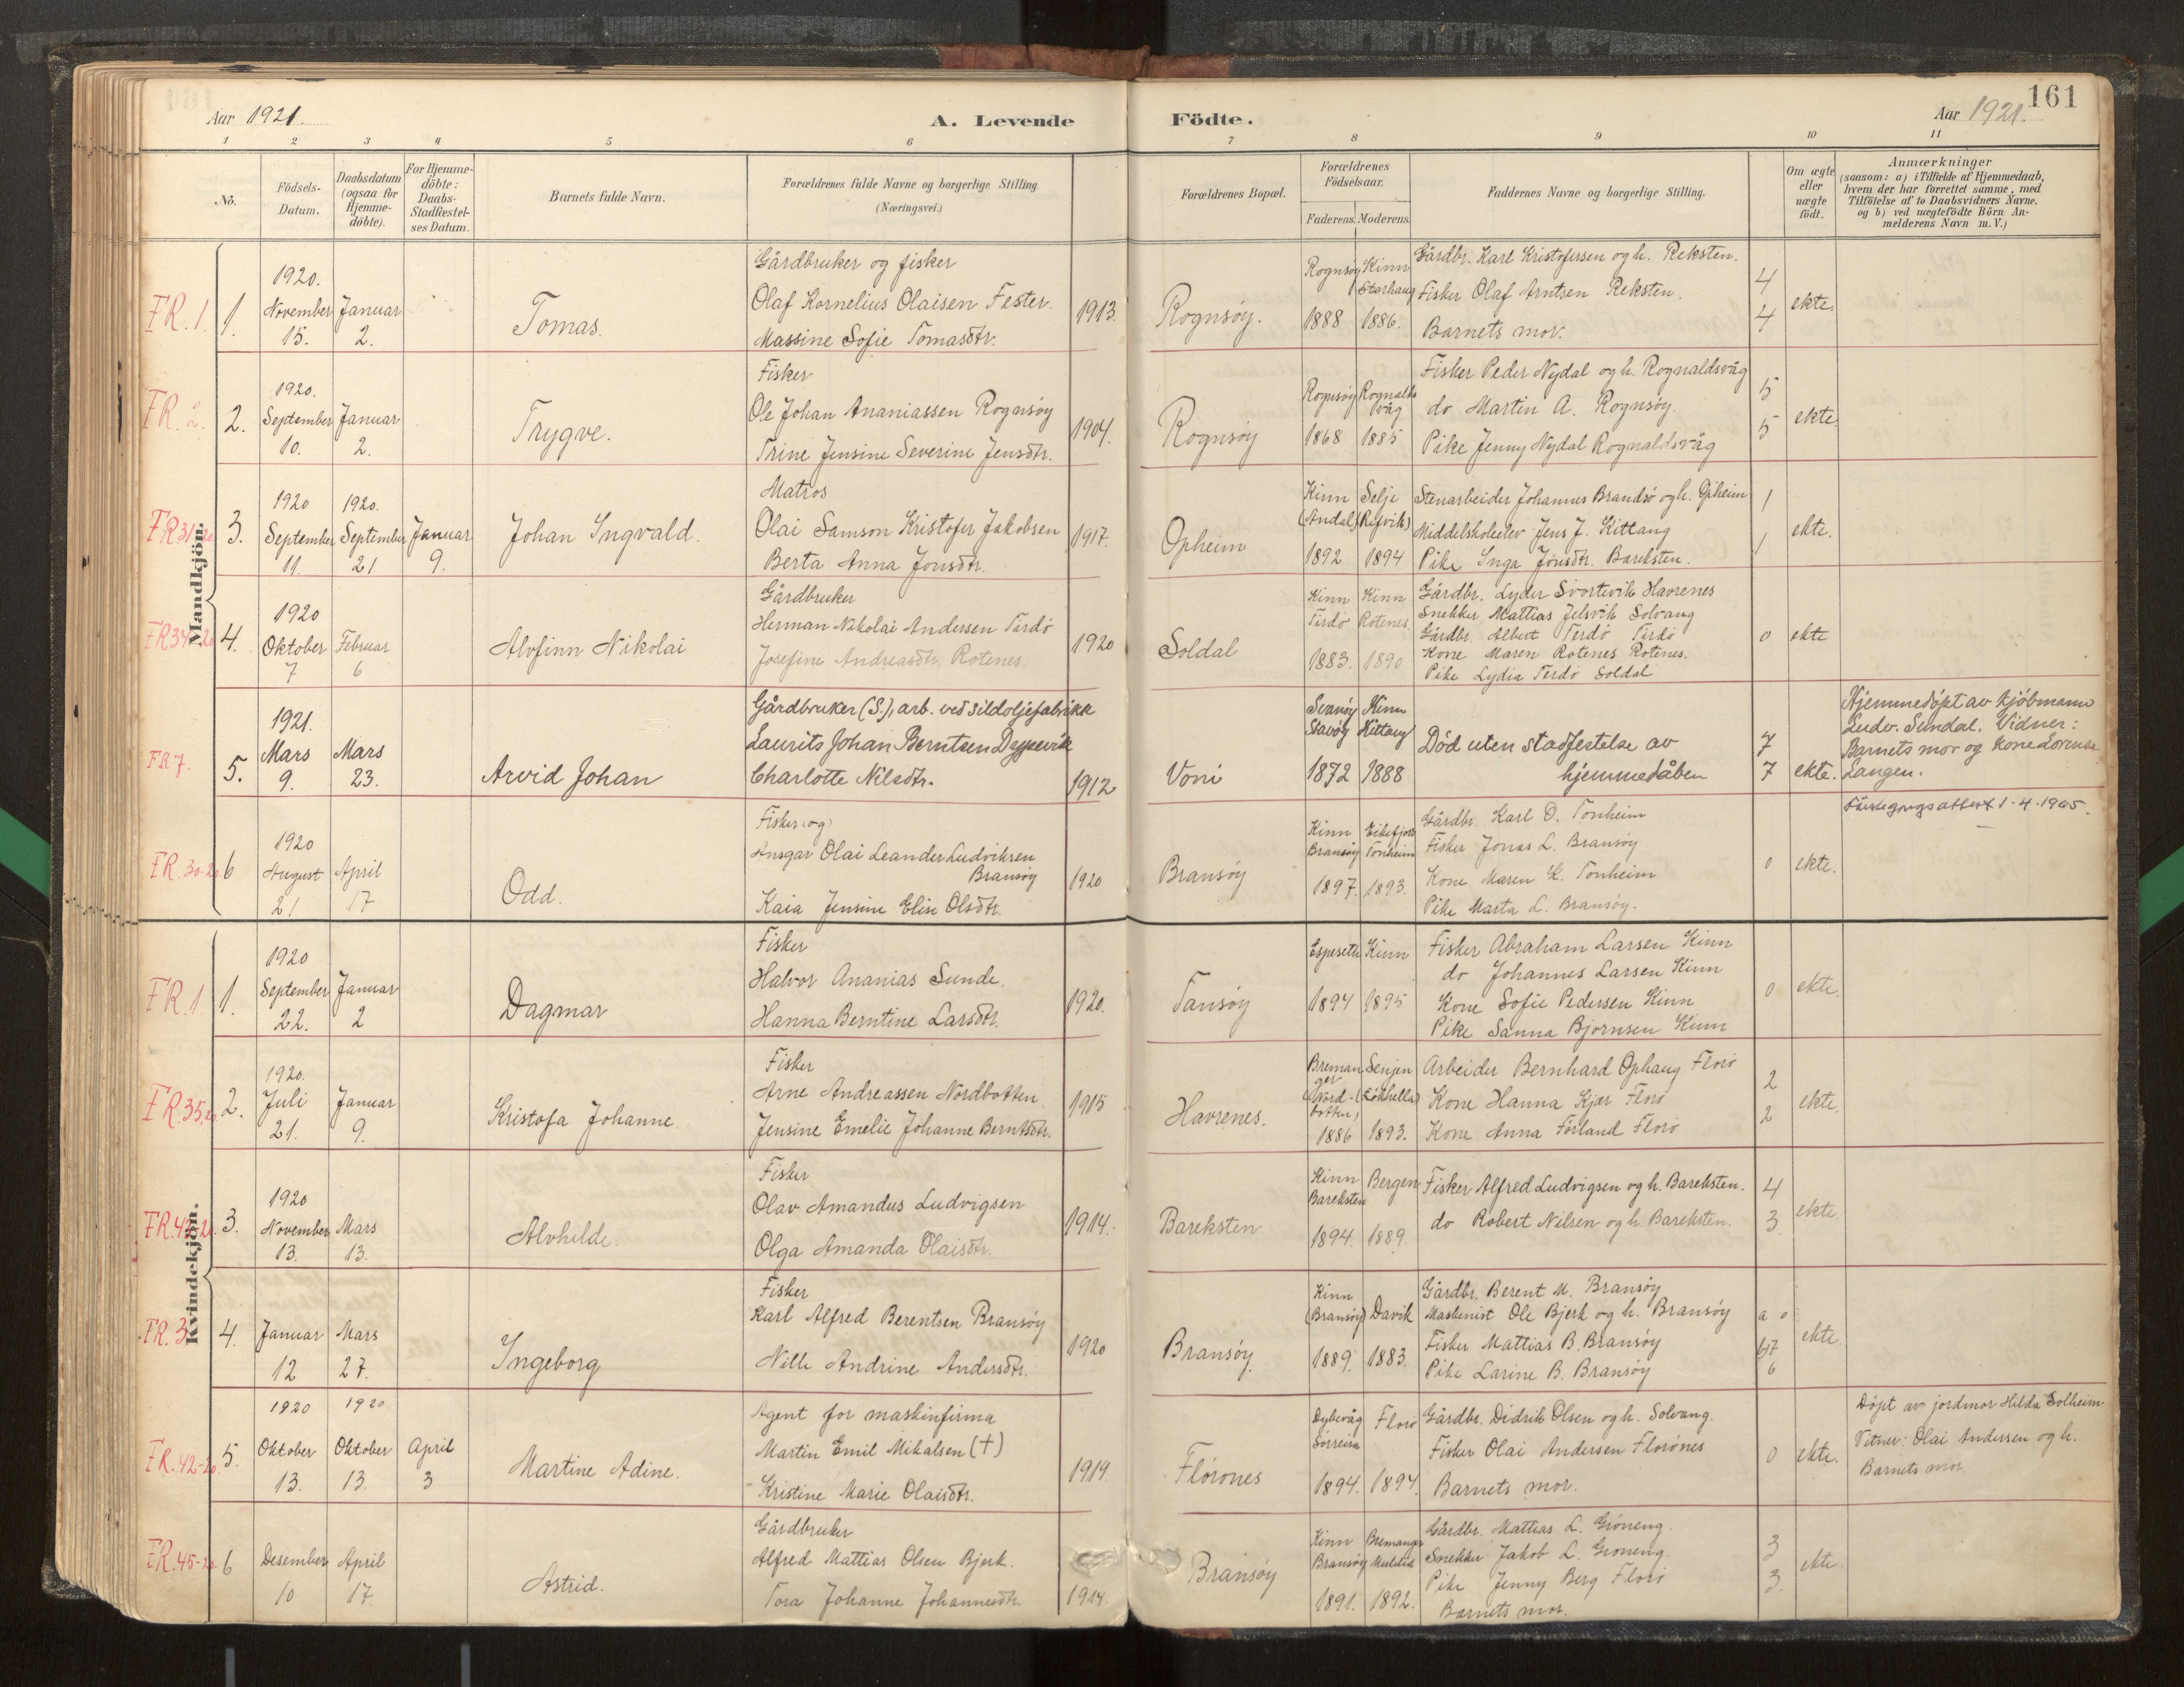 Aar 1921.
A. Levende Födte.
Aar 1921.
161
1 2 3 4 5 6 7 8 9 10 11
No.
Födsels-
Datum.
Daabsdatum
(ogsaa for
Hjemme-
döbte).
For Hjemme-
döbte:
Daabs-
Stadfæstel-
ses Datum.
Barnets fulde Navn.
Forældrenes fulde Navne og borgerlige Stilling.
(Næringsvei.)
Forældrenes Bopæl.
Forældrenes
Födselsaar.
Faderens. Moderens.
Faddernes Navne og borgerlige Stilling.
Om ægte
eller
uægte
födt.
Anmærkninger
(saasom: a) i Tilfælde af Hjemmedaab,
hvem der har forrettet samme, med
Tilföielse af to Daabsvidners Navne,
og b) ved uægtefödte Börn An-
melderens Navn m. V.)
Mandkjön.
FR. 1.
1.
1920.
November
15.
Januar
2.
Tomas.
Gårdbruker og fisker
Olaf Kornelius Olaisen Fester.
Massine Sofie Tomasdtr.
1913.
Rognsöy.
Rognsöy
1888
Kinn
Storhaug
1886.
Gårdbr. Karl Kristofersen og h. Reksten.
Fisker Olaf Arntsen Reksten.
Barnets mor.
4
4
ekte.
FR. 2.
2.
1920.
September
10.
Januar
2.
Trygve.
Fisker
Ole Johan Ananiassen Rognsöy
Trine Jensine Severine Jensdtr.
1904.
Rognsöy
Rognsöy
1868
Rognalds
våg
1885
Fisker Peder Nydal og h. Rognaldsvåg
do Martin A. Rognsöy.
Pike Jenny Nydal Rognaldsvåg
5
5
ekte.
FR 31-20
3.
1920
September
11.
1920.
September
21
Januar
9.
Johan Ingvald.
Matros
Olai Samson Kristofer Jakobsen
Berta Anna Jonsdtr.
1917.
Opheim
Kinn
(Andal)
1892
Selje
(Refvik)
1894
Stenarbeider Johannes Brandsö og h. Opheim
Middelskoleelev Jens J. Kittang
Pike Inga Jonsdtr. Bareksten.
1
1
ekte.
FR 34-20
4.
1920
Oktober
7
Februar
6
Alvfinn Nikolai
Gårdbruker
Herman Nikolai Andersen Terdö
Josefine Andreasdtr. Rotenes.
1920
Soldal
Kinn
Terdö
1883.
Kinn
Rotenes.
1890
Gårdbr. Lyder Svortevik Havrenes
Snekker Mattias Jelsvik Solvang
Gårdbr. Albert Terdö Terdö
Kone Maren Rotenes Rotenes.
Pike Lydia Terdö Soldal
0
ekte
FR 7.
5.
1921.
Mars
9.
Mars
23.
Arvid Johan
Gårdbruker (S.), arb. ved Sildoljefabrikk
Laurits Johan Berntsen Dypevik
Charlotte Nilsdtr.
1912
Voni
Svanöy
Stavöy
1872
Kinn
Kittang
1888
Död uten stadfestelse av
hjemmedåben
7
7
ekte.
Hjemmedöpt av kjöbmann
Ludv. Sundal. Vidner:
Barnets mor og kone Lorense
Langen.
FR. 30-20.
6
1920
August
21
April
17
Odd.
Fisker (og)
Ansgar Olai Leander Ludviksen
Bransöy
Kaia Jensine Elise Olsdtr.
1920
Bransöy
Kinn
Bransöy
1897.
Eikefjord
Tonheim
1893.
Gårdbr. Karl D. Tonheim
Fisker Jonas L. Bransöy
Kone Maren K. Tonheim
Pike Marta L. Bransöy.
0
ekte.
1-4-1965.
Kvindekjön.
FR. 1
1.
1920
September
22.
Januar
2
Dagmar
Fisker
Halvor Ananias Sunde.
Hanna Berntine Larsdtr.
1920.
Tansöy
Espeseth
1894
Kinn
1895
Fisker Abraham Larsen Kinn
do Johannes Larsen Kinn
Kone Sofie Pedersen Kinn
Pike Sanna Bjornsen Kinn
0
ekte.
FR. 35,20
2.
1920.
Juli
21.
Januar
9.
Kristofa Johanne.
Fisker
Arne Andreassen Nordbotten
Jensine Emelie Johanne Berntsdtr.
1915
Havrenes.
Breman
ger
(Nord-
botten)
1886
Senjen
(Lökhella)
1893.
Arbeider Bernhard Ophaug Florö
Kone Hanna Kjær Florö
Kone Anna Förland Florö
2
2
ekte.
FR. 43-20.
3.
1920
November
13.
Mars
13.
Alvhilde.
Fisker
Olav Amandus Ludvigsen
Olga Amanda Olaisdtr.
1914.
Bareksten
Kinn
Bareksten
1894.
Bergen
1889.
Fisker Alfred Ludvigsen og h. Bareksten.
do Robert Nilsen og h. Bareksten.
4
3
ekte
FR. 3
4.
Januar
12
Mars
27.
Ingeborg
Fisker
Karl Alfred Berentsen Bransöy
Nille Andrine Andersdtr.
1920
Bransöy.
Kinn
(Bransöy)
1889.
Davik
1883.
Gårdbr. Berent M. Bransöy
Maskinist Ole Bjerk og h. Bransöy
Fisker Mattias B. Bransöy
Pike Larine B. Bransöy
a 0
b 7
6
ekte.
FR. 42-20.
5.
1920
Oktober
13.
1920
Oktober
13.
April
3
Martine Adine.
Agent for maskinfirma
Martin Emil Mikalsen (†)
Kristine Marie Olaisdtr.
1919.
Flörones
Dybvåg
Sörreisa
1894.
Florö
1894.
Gårdbr. Didrik Olsen og h. Solvang.
Fisker Olai Andersen Florönes
Barnets mor.
0
ekte.
Döpt av jordmor Hilda Solheim
Vitner: Olai Andersen og h.
Barnets mor
FR. 45-20.
6
Desember
10
April
17.
Astrid.
Gårdbruker
Alfred Mattias Olsen Bjerk.
Tora Johanne Johannesdtr.
1914.
Bransöy
Kinn
Bransöy
1891.
Bremanger
1892.
Gårdbr. Mattias L. Gröneng.
Snekker Jakob L. Gröneng.
Pike Jenny Berg Florö
Barnets mor.
3
3.
ekte